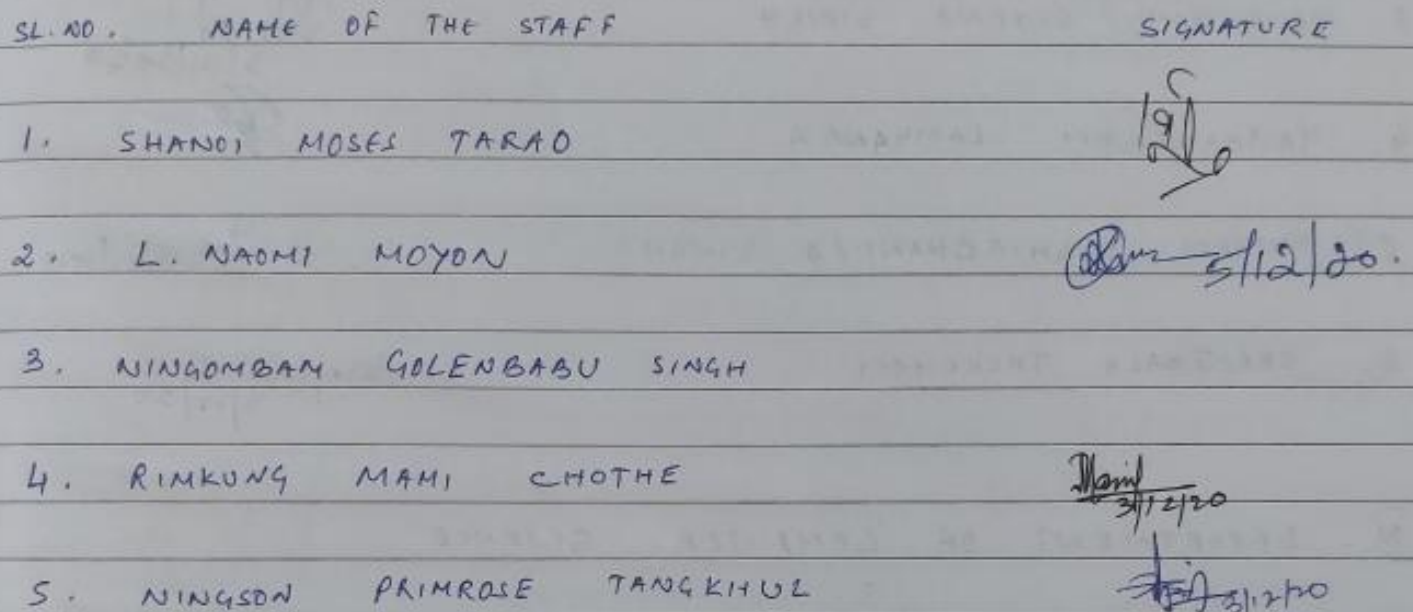 SL. NO. NAME OF THE STAFF SIGNATURE
1. SHANOI MOSES TARAO
2. L. NAOMI MOYON 5/12/20.
3. NINGOMBAM GOLENBABU SINGH
4. RIMKUNG MAMI CHOTHE Mami 3/12/20
5. NINGSON PRIMROSE TANGKHUL 3/12/20